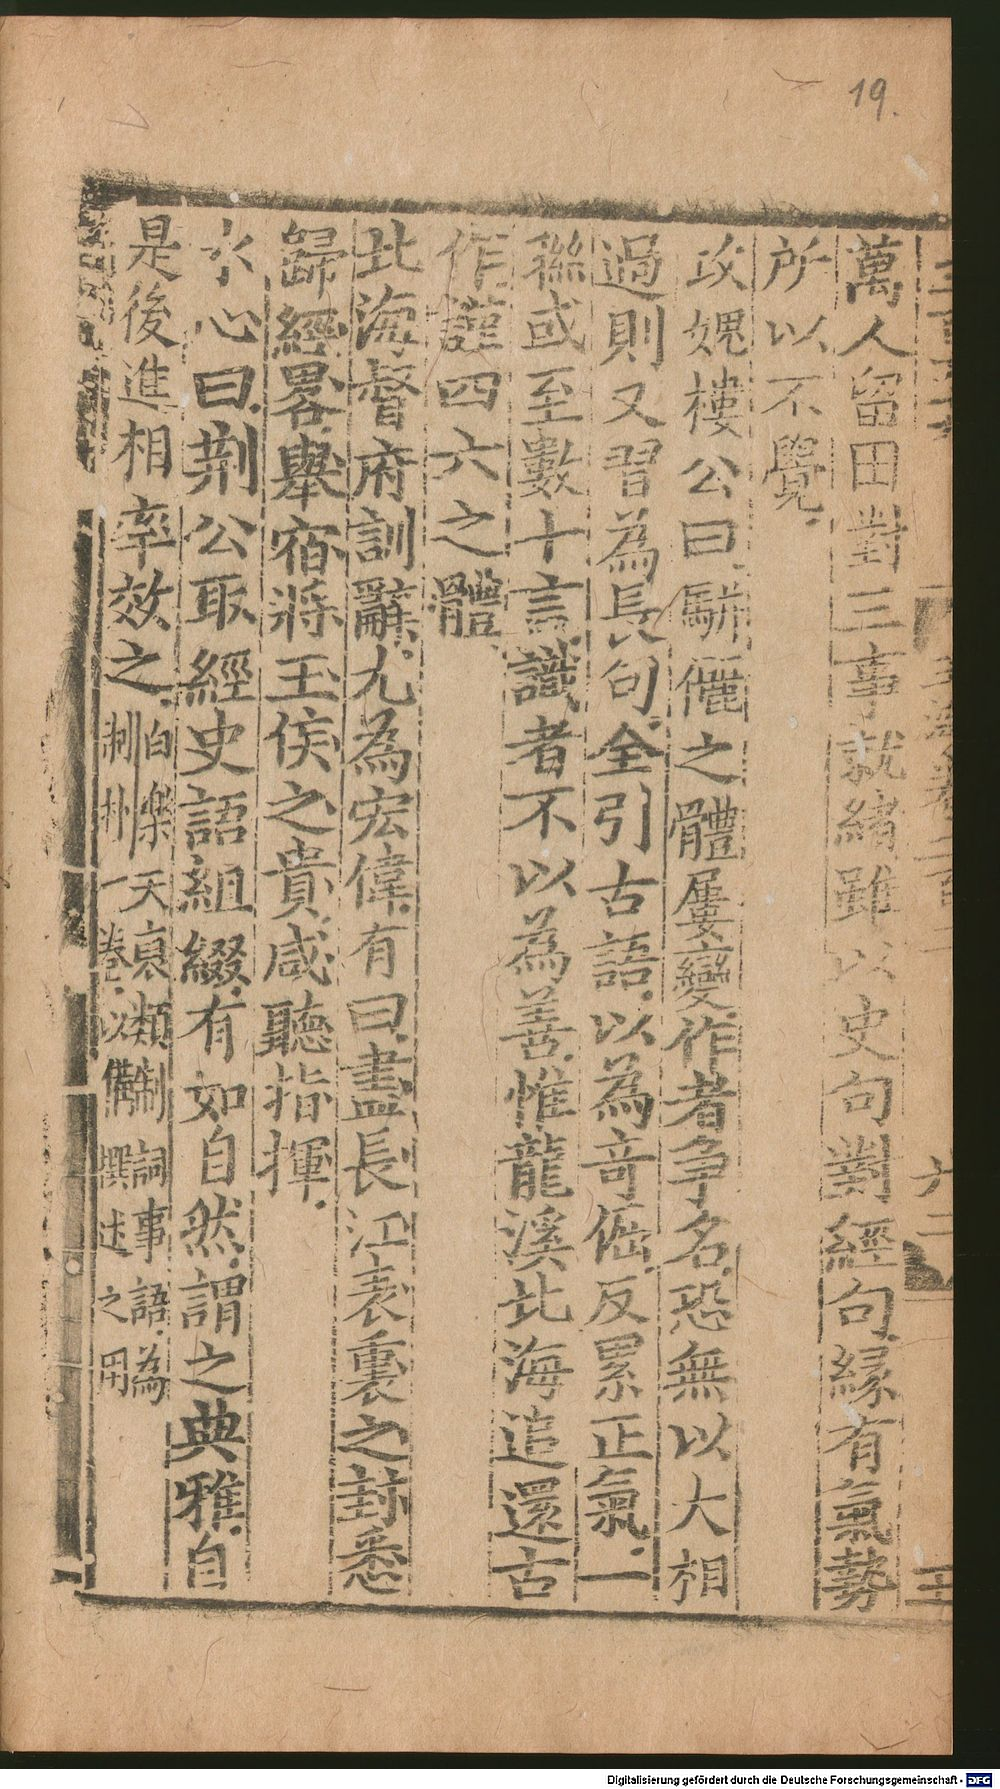 19.
萬人留田對三事就緒雖以史句對經句縁有氣勢
所以不覺
攻媿樓公曰駢儷之體屢變作者争名恐無以大相
過則又習為長句全引古語以為竒倔反累正氣一
聮或至數十言識者不以為善惟龍溪北海追還古
作謹四六之體
北海督府訓辭尤為宏偉有曰盡長江表裏之封悉
歸經畧舉宿將王侯之貴咸聽指揮
水心曰荆公取經史語組綴有如自然謂之典雅自
是後進相率效之
白樂天裒類制詞事語為
制朴一卷以備撰述之用
Digitalisierung gefördert durch die Deutsche Forschungsgemeinschaft - DFG